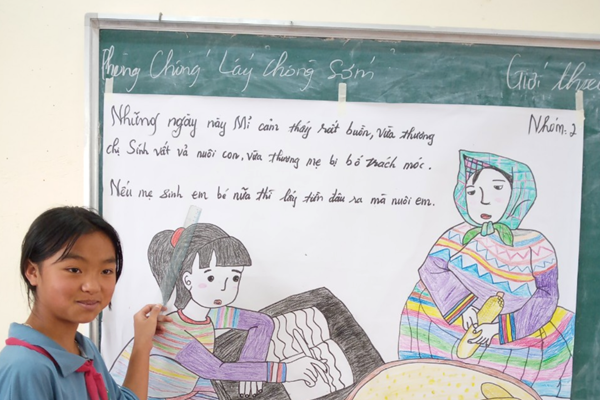 Phòng Chống Lấy Chồng Sớm
Giới thiệu
Nhóm: 2
Những ngày này Mỉ cảm thấy rất buồn, vừa thương
chị Sính vất vả nuôi con, vừa thương mẹ bị bố trách móc.
Nếu mẹ sinh em bé nữa thì lấy tiền đâu ra mà nuôi em.